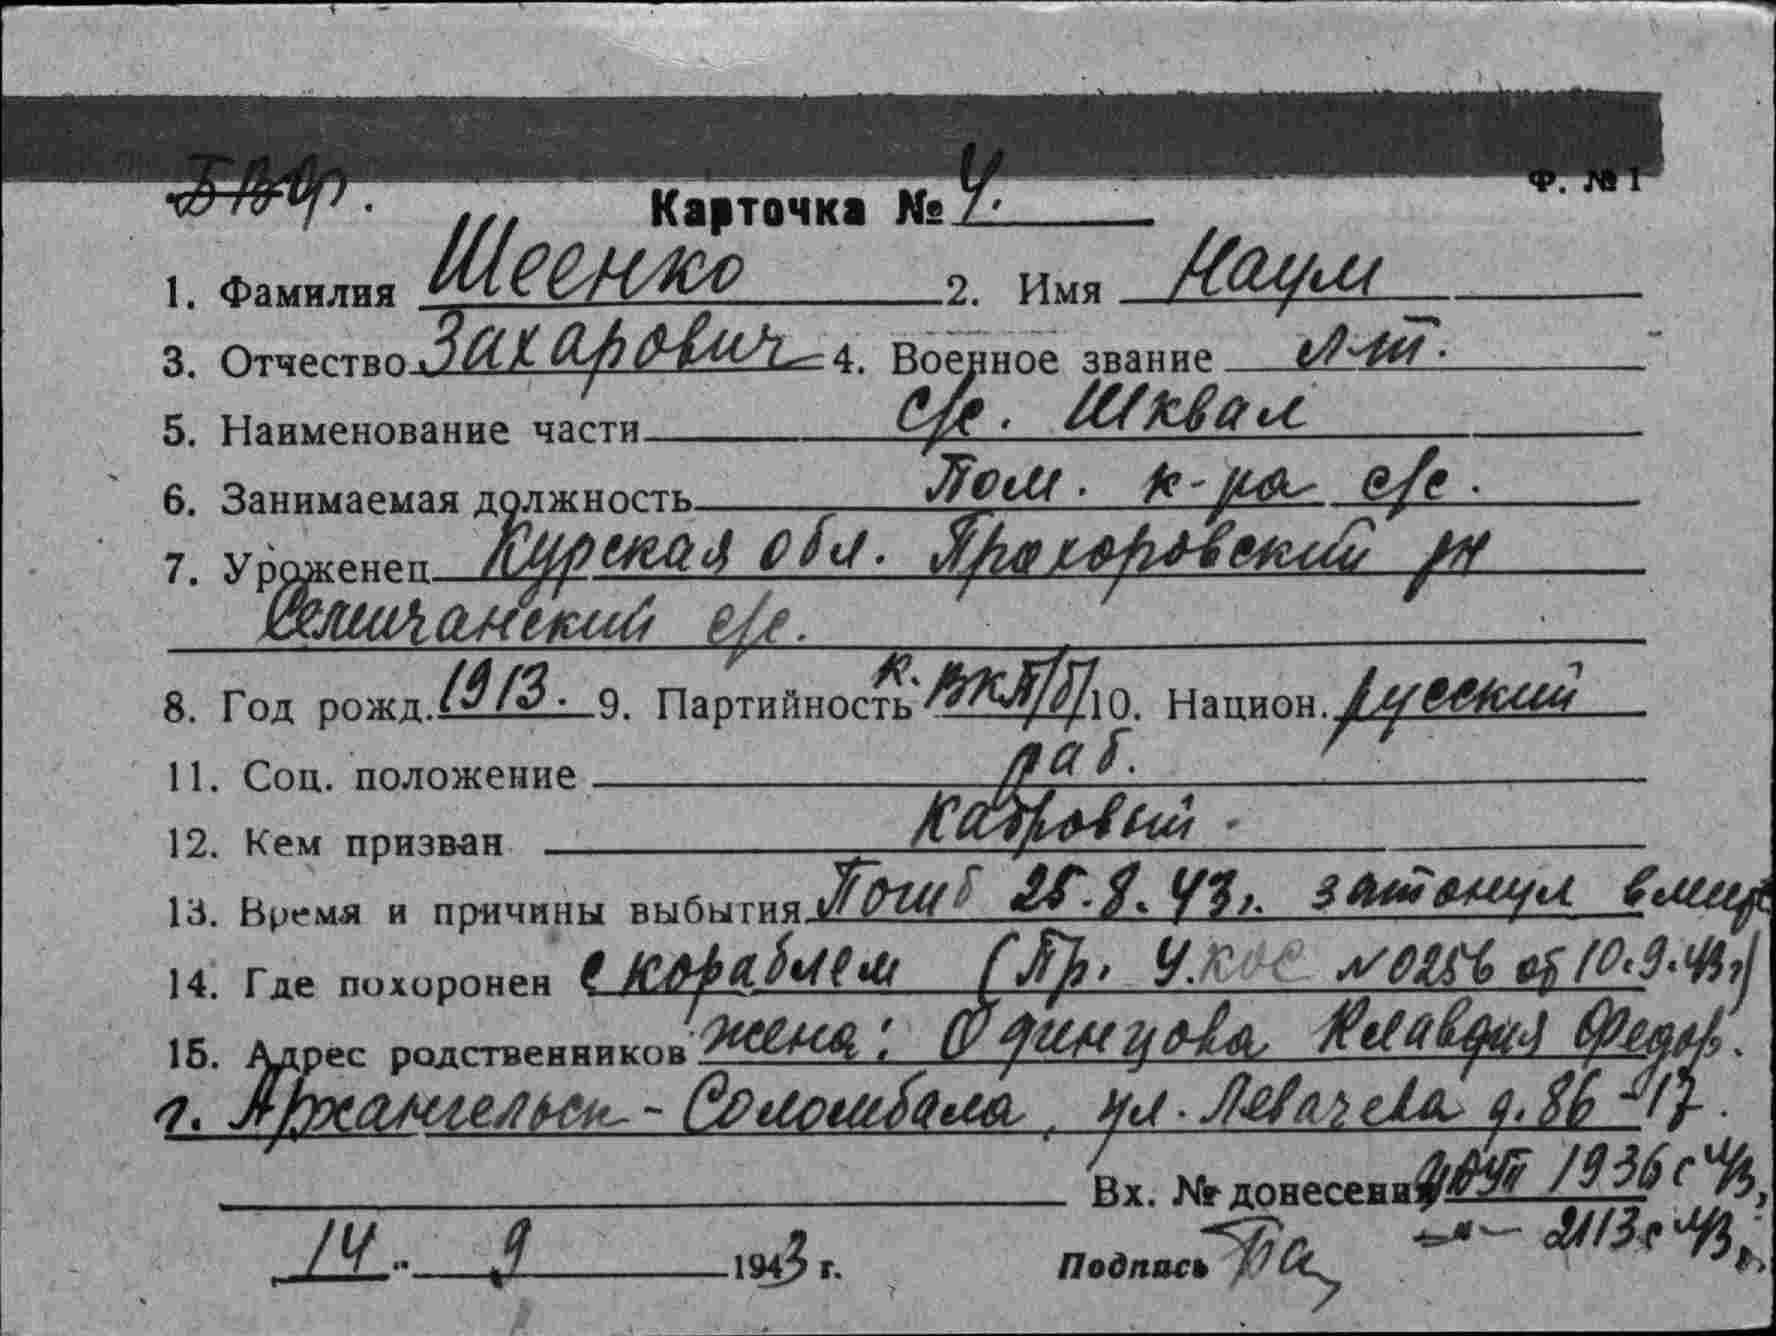 БВФ.
Ф. № 1
Карточка № 4.
1. Фамилия Шеенко 2. Имя Наум
3. Отчество Захарович 4. Военное звание л-т.
5. Наименование части с/с. Шквал
6. Занимаемая должность Пом. к-ра с/с.
7. Уроженец Курская обл. Прохоровский рн
Селичанский с/с.
8. Год рожд. 1913. 9. Партийность к. ВКП/б/ 10. Национ. русский
11. Соц. положение раб.
12. Кем призван Кадровый.
13. Время и причины выбытия Погиб 25.8.43г. затонул вмест
14. Где похоронен с кораблем (Пр. У. № 0256 от 10.9.43г)
15. Адрес родственников жена: Одинцова Клавдия Федор.
г. Архангельск - Соломбала, ул. Левачева д. 86-17.
Вх. № донесения 1936с 43г.
—"— 2113с 43г.
14. 9 1943 г. Подпись